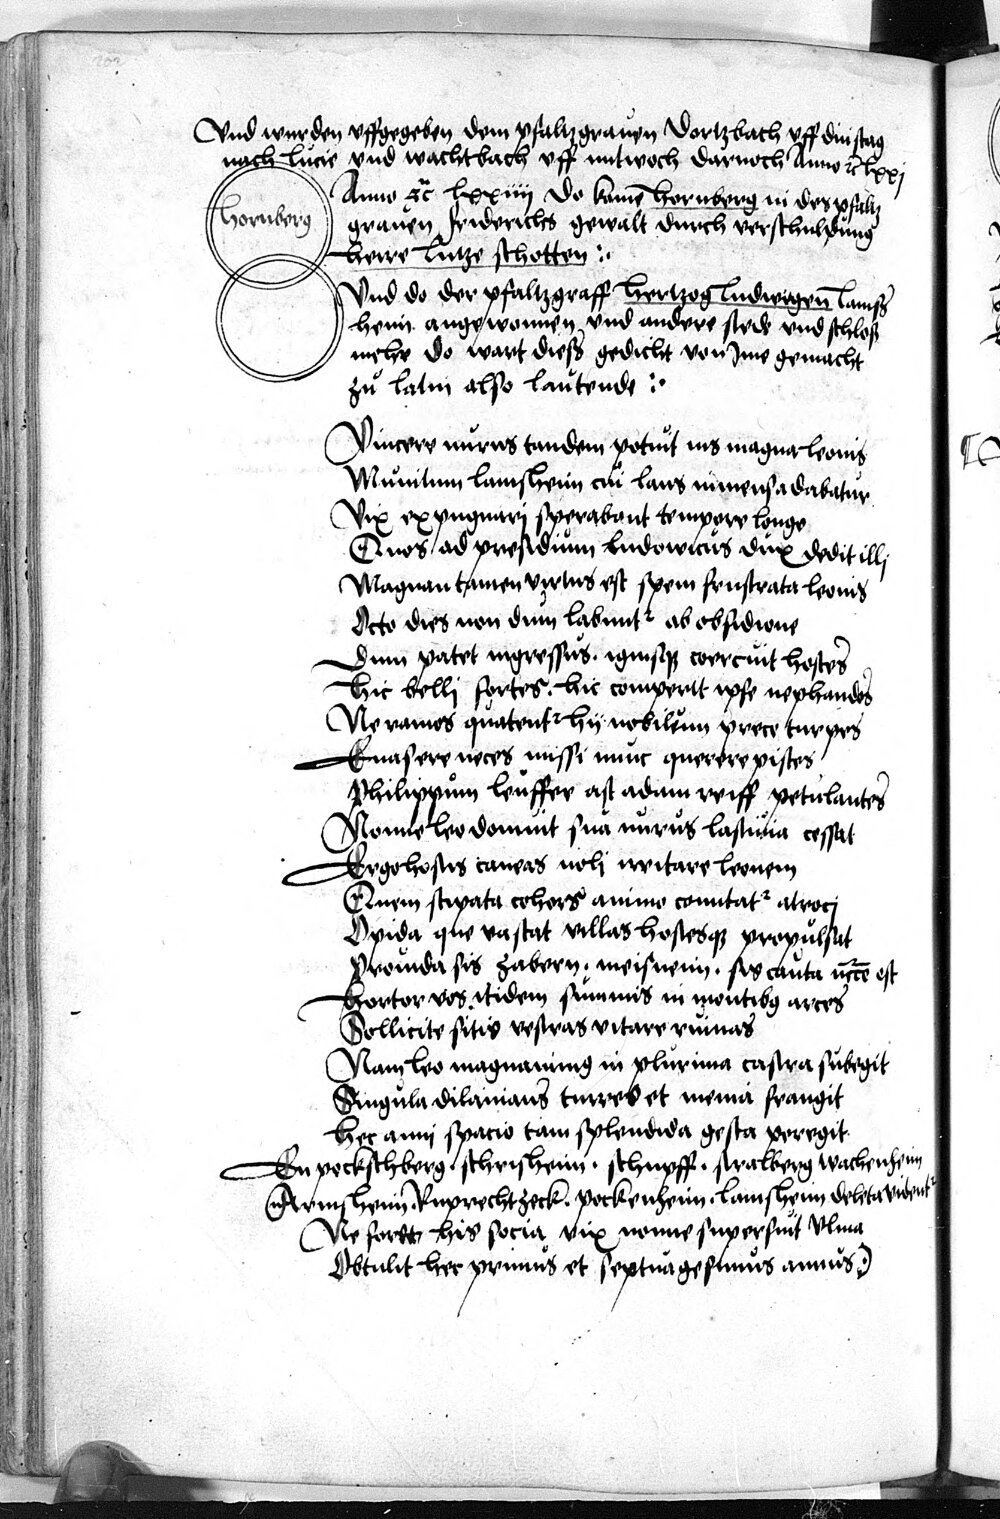 202
Vnd wurden vffgegeben dem pfaltzgrauen Dortzbach vff dinstag
nach lucie vnd wachtbach vff mitwoch darnoch Anno rc lxxj
hornberg
Anno rc lxxiiij Do kame hornberg in des pfaltz
grauen friderichs gewalt durch verschuldung
herre lutze schotten :.
Vnd do der pfaltzgraff hertzog ludwigen lamß
heim angewonnen vnd andere stede vnd schloß
mehr do wart dieß gedicht von Ime gemacht
zu latin also lautende :.
Vincere murus tandem potuit vis magna leonis
Munitum lamsheim cui laus inmensa dabatur
Vix expugnarj sperabant tempore longo
Quos ad presidium ludowicus dux dedit illj
Magnan tamen virtus est spem frustrata leonis
Octo dies non dum labunt ab obsidione
Dum patet ingressus. ignisq coercuit hostes
hic bellj fortes. hic comperit ipse nephandos
Ne ramos quatent hij nobilium prece turpes
Euasere neces missi nunc querere pistes
Philippum leuffer ast adam reiff petulantes
Nonne leo domuit sua murus lasciuia cessat
Ergo hostis caueas nolj irritare leonem
Quem stipata cohors animo comitat atrocj
Opida que vastat villas hostesq propulsat
Prouida sis zabern. meisneim. sis cauta est
hortor vos itidem summis in montibq arces
Sollicite sitis vestras vitare ruinas
Nam leo magnanimq in plurima castra subegit
Singula dilanians turres et menia frangit
hec anni spacio tam splendida gesta peregit
En pockschberg. schrisheim. schupff. stralberg wachenheim
Armsheim. Ruprechtzeck. pockenheim. lamsheim deleta vident
Ne foret his socia vix nonne superfuit vlma
Obtulit hec primus et septuagesimus annus